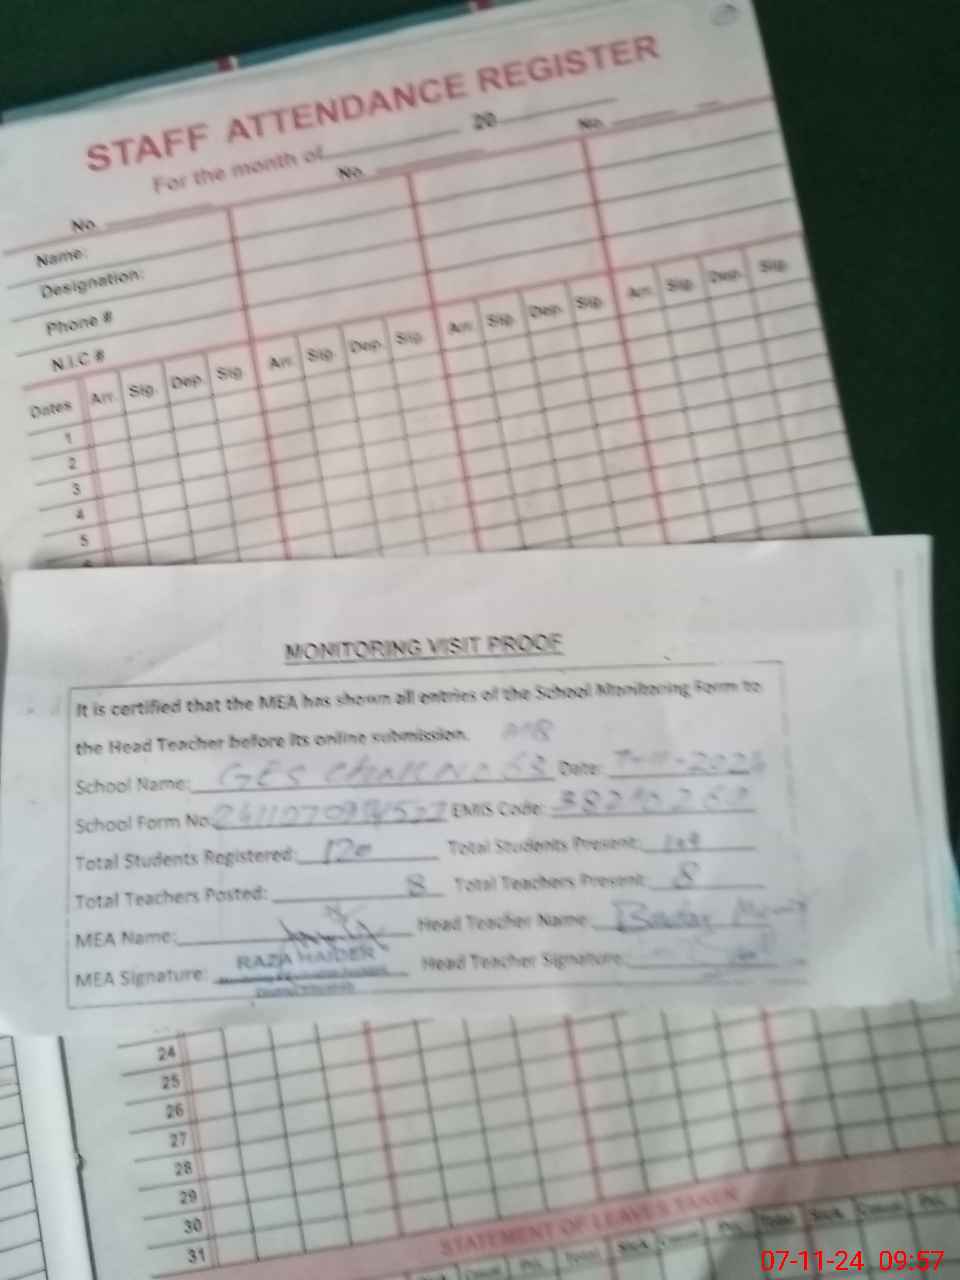 STAFF ATTENDANCE REGISTER
For the month of 20
No. No. No.
Name:
Designation:
Phone #
N.I.C #
Dates Arr. Sig. Dep. Sig. Arr. Sig. Dep. Sig. Arr. Sig. Dep. Sig. Arr. Sig. Dep. Sig.
1
2
3
4
5
MONITORING VISIT PROOF
It is certified that the MEA has shown all entries of the School Monitoring Form to
the Head Teacher before its online submission.
School Name: GES Chak No 68 Date: 7-11-2024
School Form No: EMIS Code:
Total Students Registered: 120 Total Students Present:
Total Teachers Posted: 8 Total Teachers Present: 8
MEA Name: Head Teacher Name:
RAZA HAIDER
MEA Signature: Head Teacher Signature:
24
25
26
27
28
29
30
31
STATEMENT OF LEAVES TAKEN
07-11-24 09:57